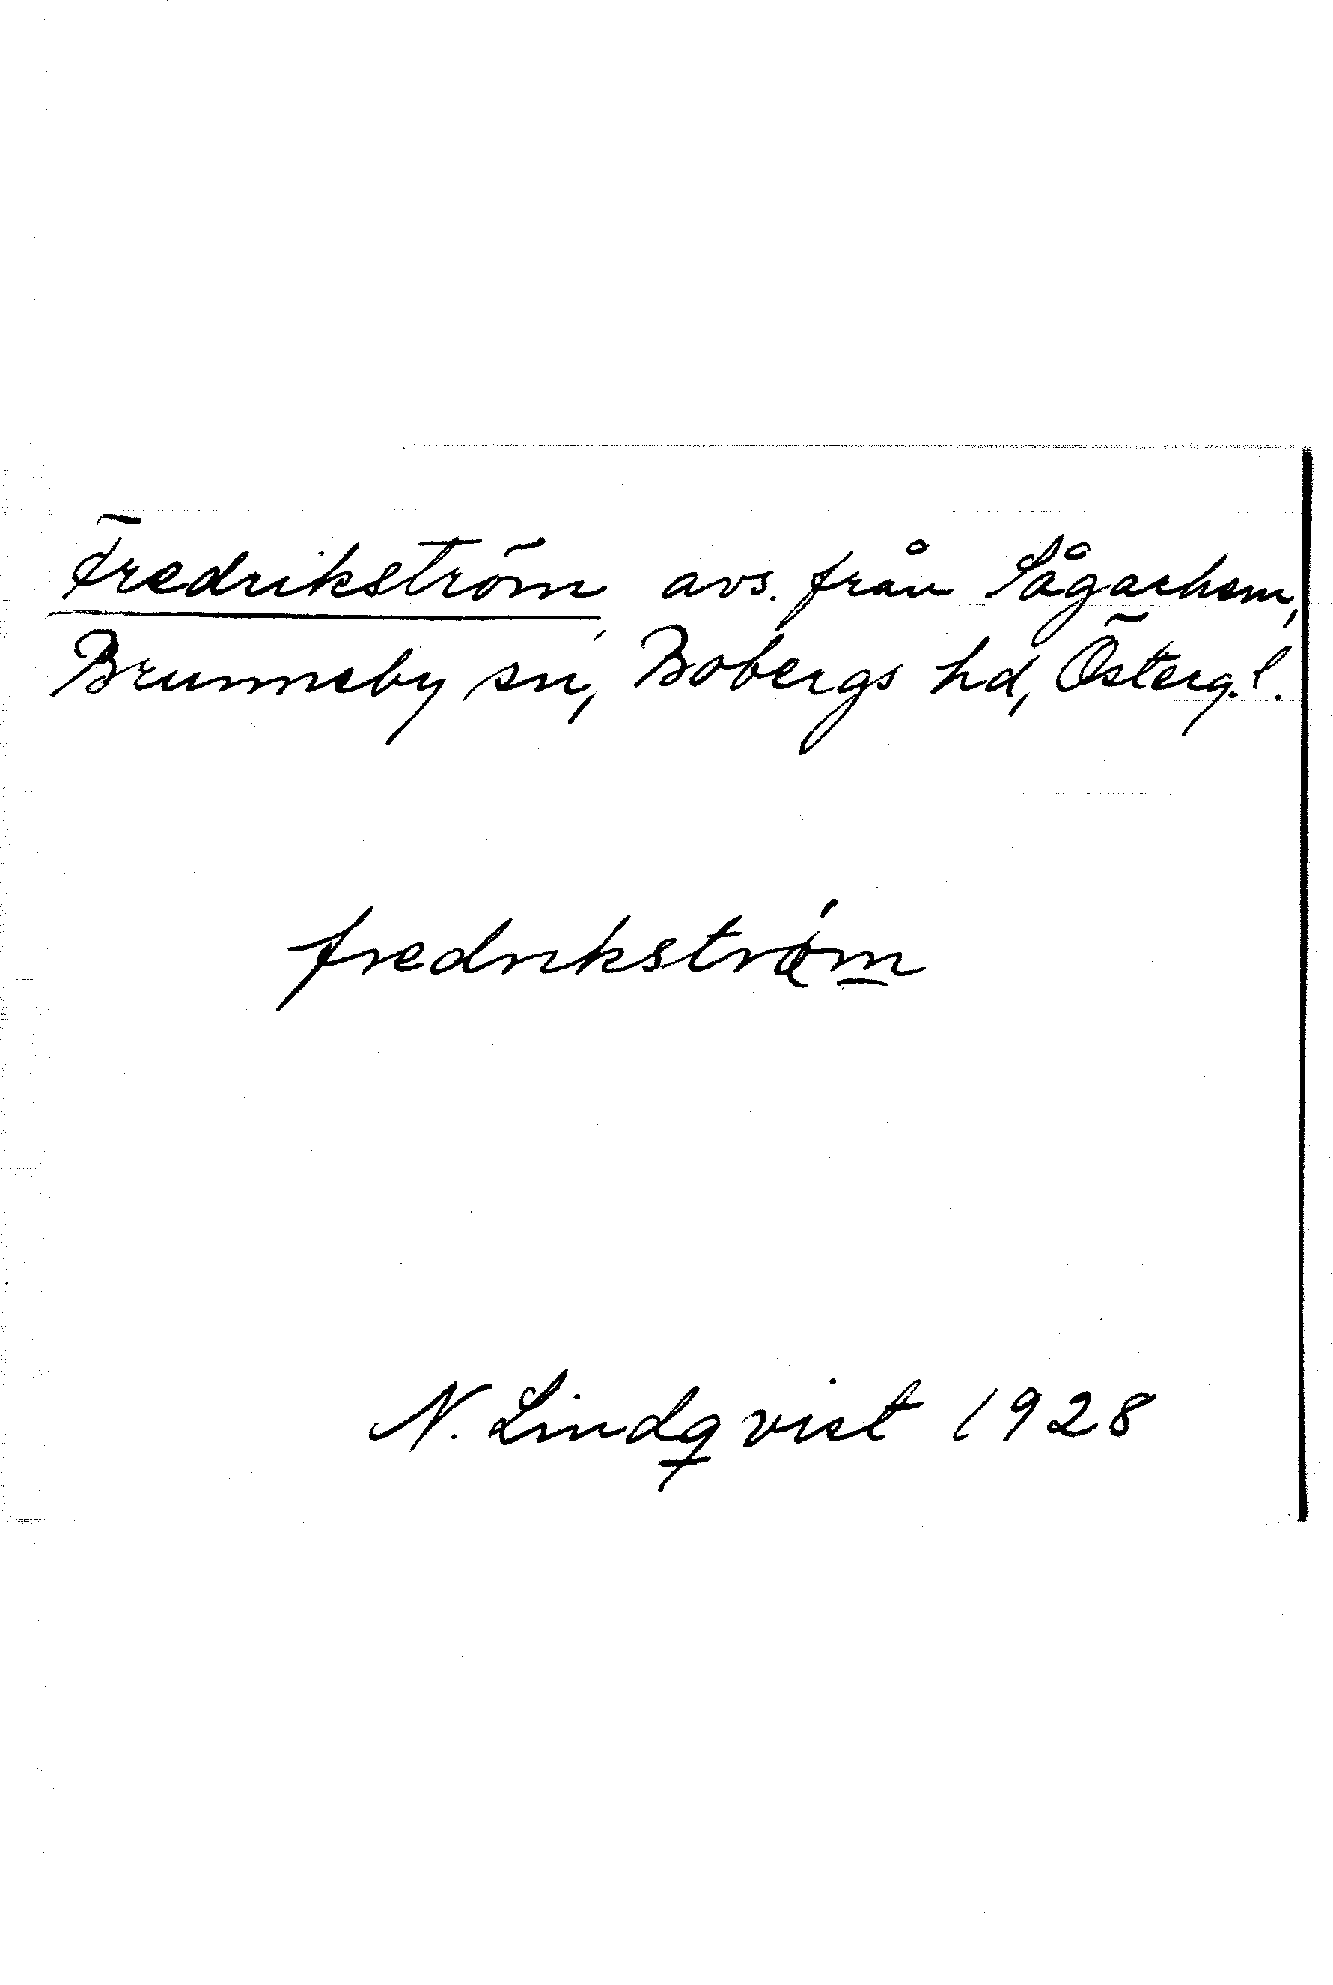 Fredrikström avs. från Sågarhem,
Brunneby sn, Bobergs hd, Österg. l.
fredrikström
N. Lindqvist 1928